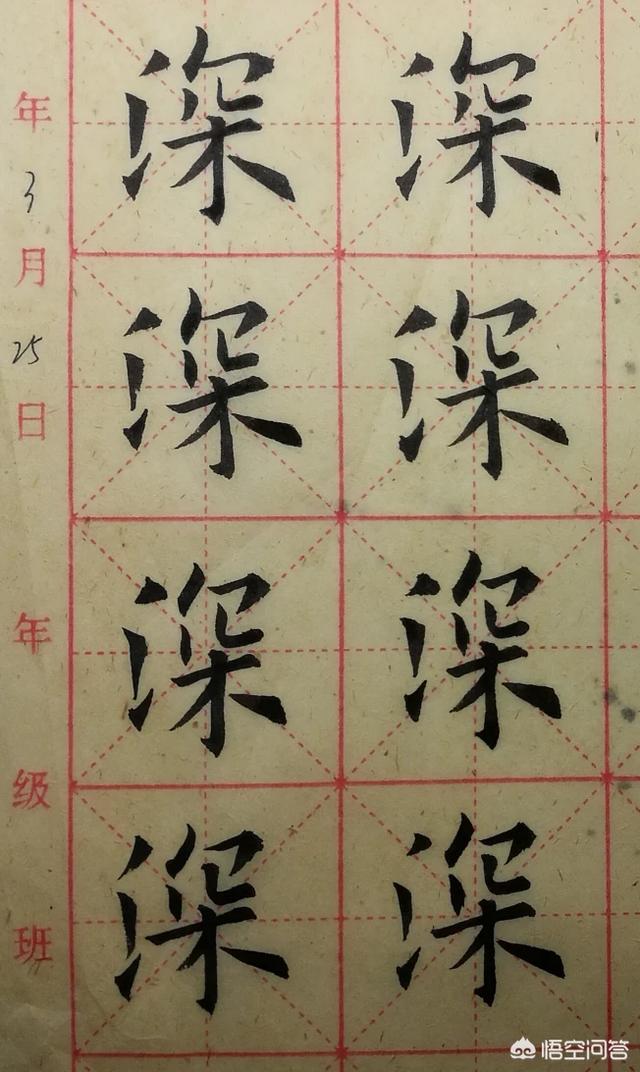 年3月25日 年级班
深深
深深
深深
深深
悟空问答